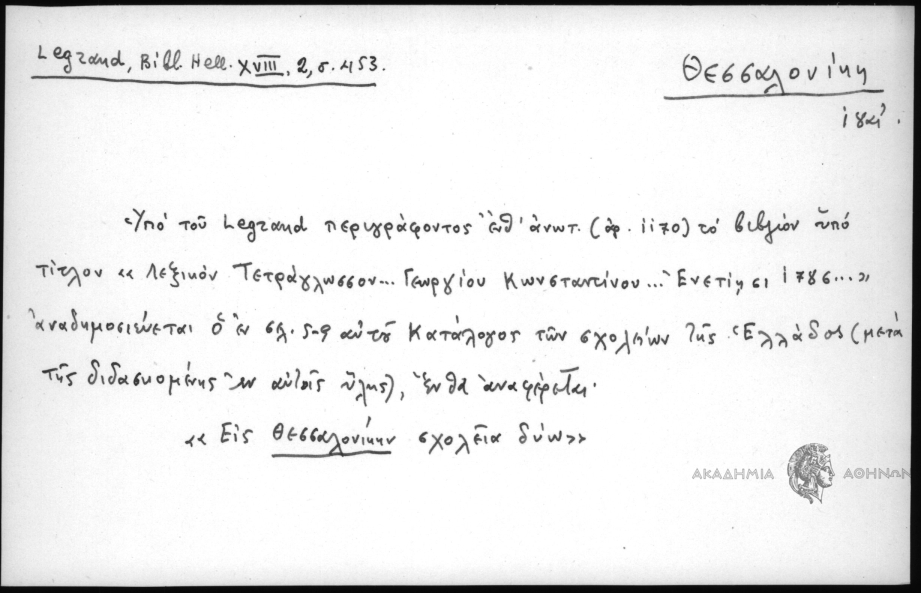 Legrand, Bibl. Hell. XVIII, 2, σ. 453.
Θεσσαλονίκη
Ὑπό τοῦ Legrand περιγράφοντος ἐνθ' ἀνωτ. (ἀρ. 1170) τό βιβλίον ὑπό
τίτλον «Λεξικόν Τετράγλωσσον... Γεωργίου Κωνσταντίνου... Ἐνετίησι 1786...»
ἀναδημοσιεύεται ὁ ἐν σελ. 5-9 αὐτοῦ κατάλογος τῶν σχολείων τῆς Ἑλλάδος (μετά
τῆς διδασκομένης ἐν αὐτοῖς ὕλης), ἔνθα ἀναφέρεται·
«Εἰς Θεσσαλονίκην σχολεῖα δύω»
ΑΚΑΔΗΜΙΑ ΑΘΗΝΩΝ